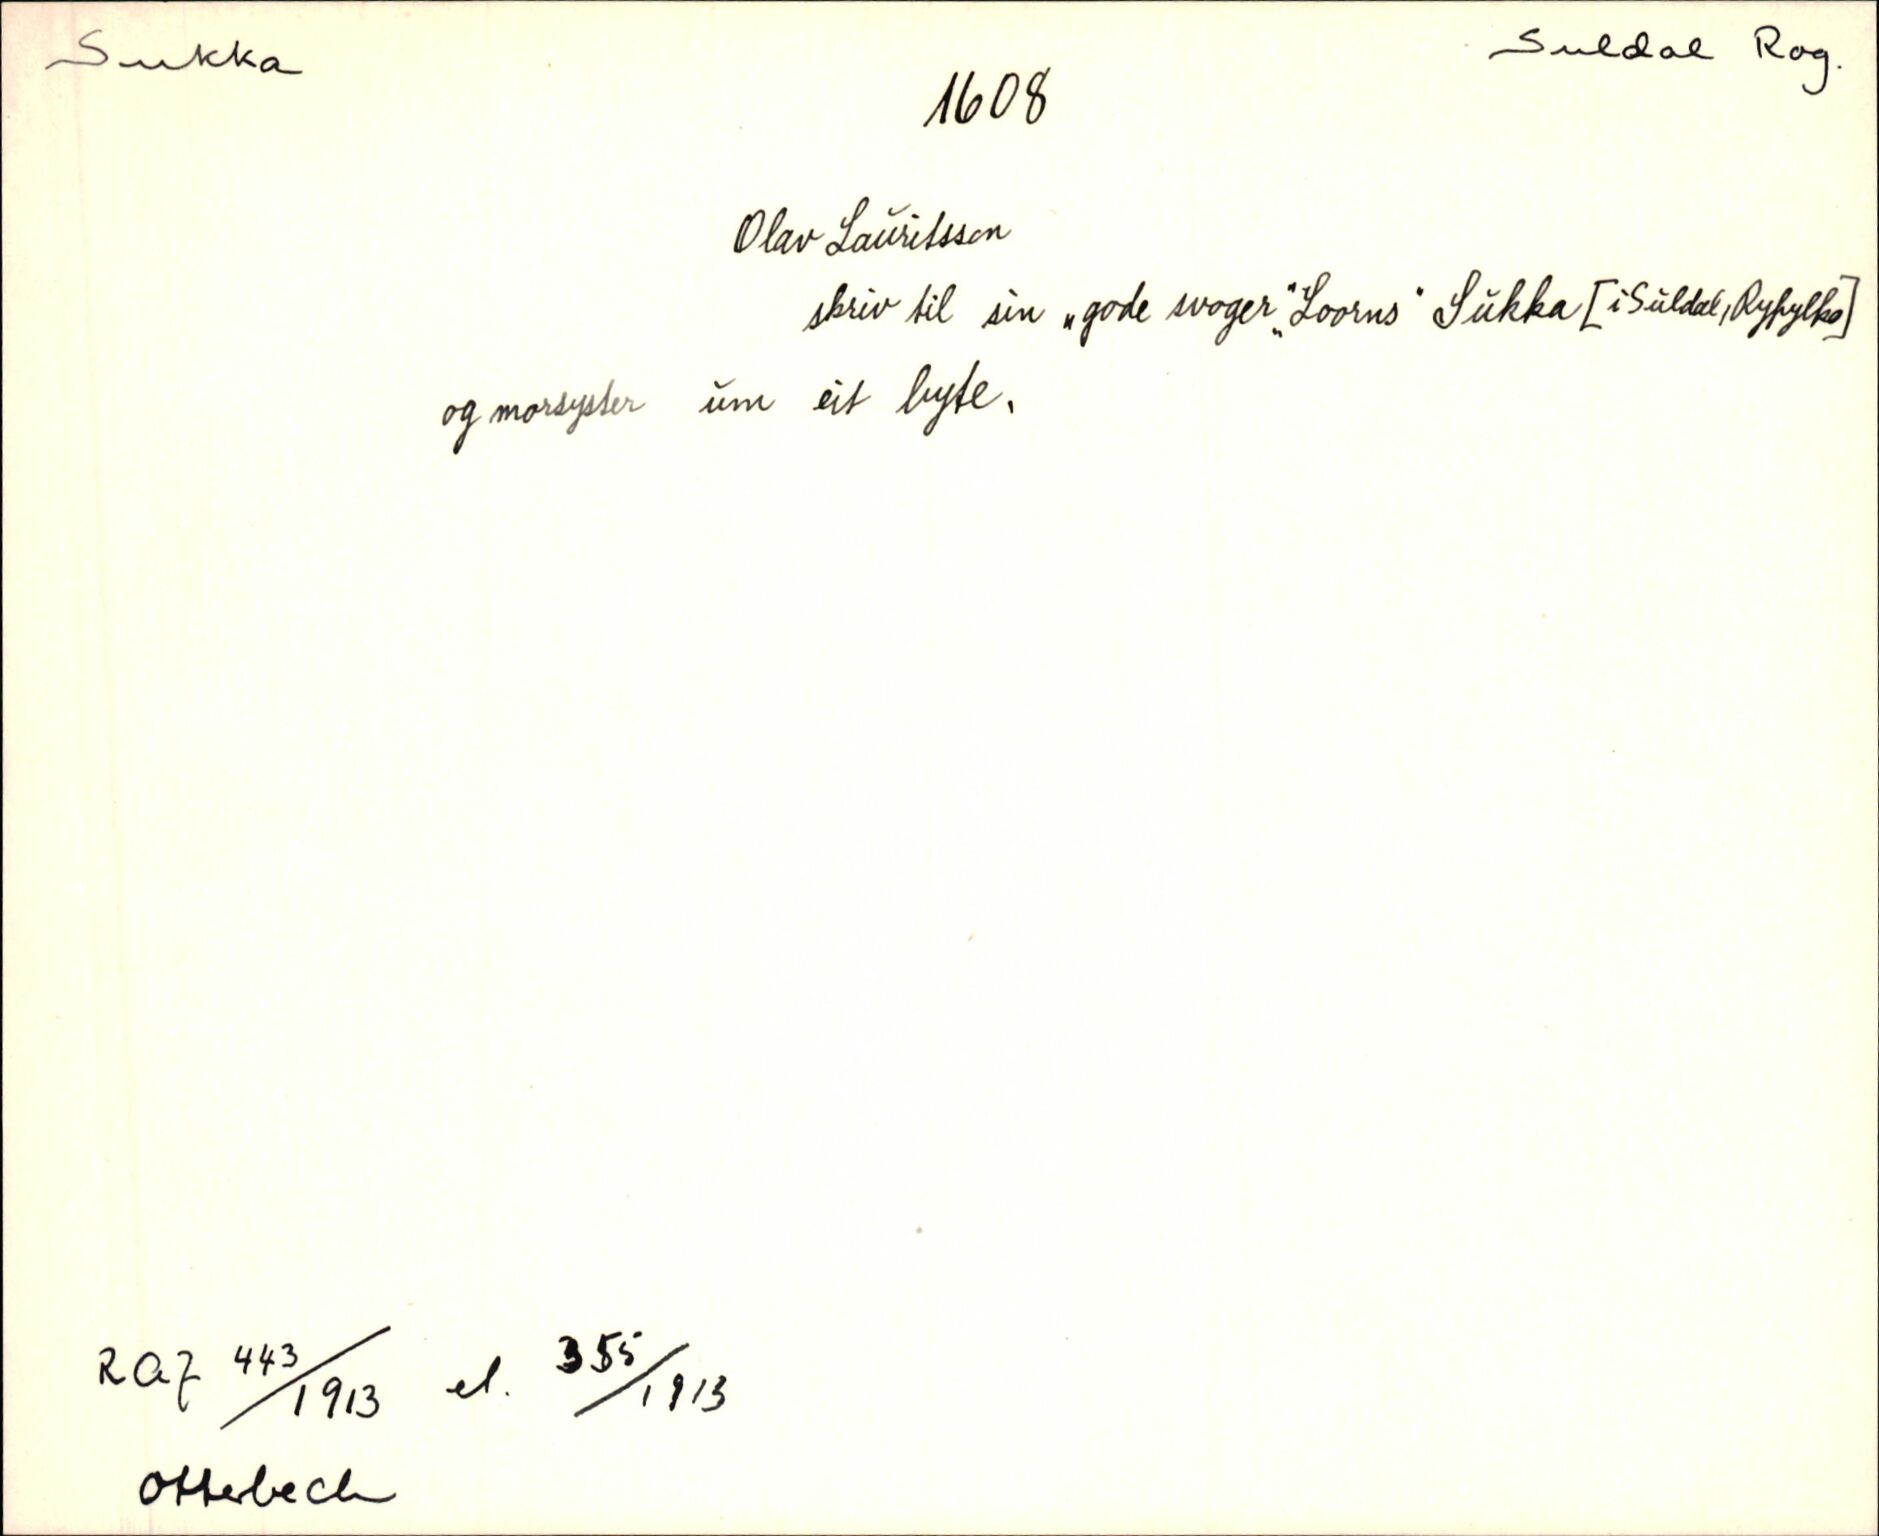 Sukka
Suldal Rog.
1608
Olav Lauritsson
skriv til sin „gode svoger" „Loorns" Sukka [i Suldal, Ryfylke]
og morsyster um eit byte.
443/1913 el. 355/1913
Otterbech